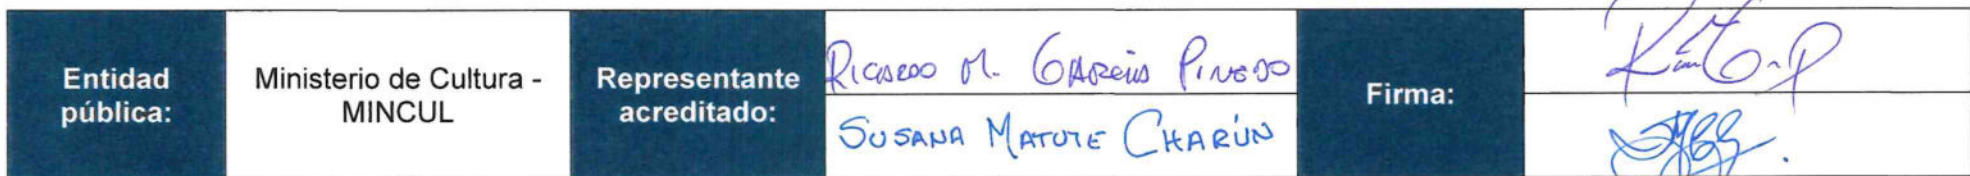 Entidad
pública:
Ministerio de Cultura -
MINCUL
Representante
acreditado:
RICARDO M. GARCÍA PINEDO
SUSANA MATUTE CHARÚN
Firma: